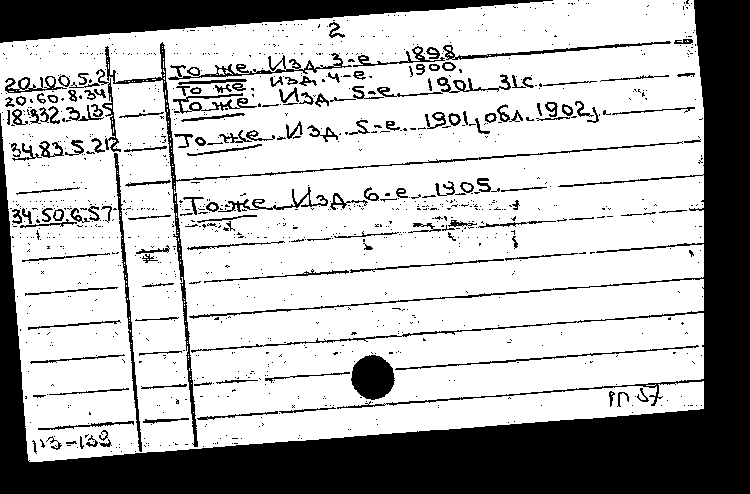 2
20.100.5.24 То же. Изд. 3-е. 1898.
20.60.8.34 То же. Изд. 4-е. 1900.
18.332.3.135 То же. Изд. 5-е. 1901. 31с.
34.83.5.212 То же. Изд. 5-е. 1901, обл. 1902.
34.50.6.57 То же. Изд. 6-е. 1905.
113-139